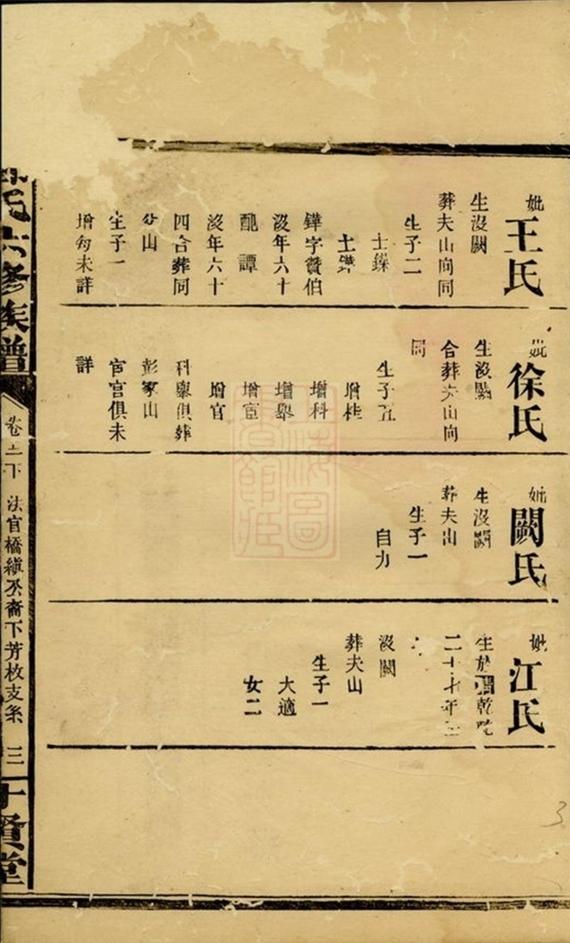 妣
王氏
生沒闕
葬夫山向同
生子二
士鏷
士鏵
鏵字贊伯
沒年六十
配譚
沒年六十
四合葬同
分山
生子一
增旬未詳
妣
徐氏
生沒闕
合葬夫山向
同
生子五
增桂
增科
增舉
增宦
增官
科舉俱葬
彭家山
官宦俱未
詳
妣
闕氏
生沒闕
葬夫山
生子一
自力
妣
江氏
生於清乾隆
二十七年
沒闕
葬夫山
生子一
大適
女二
氏六修族譜
卷
下
法官橋縝丕裔下芳枚支系
三
十賢堂
3